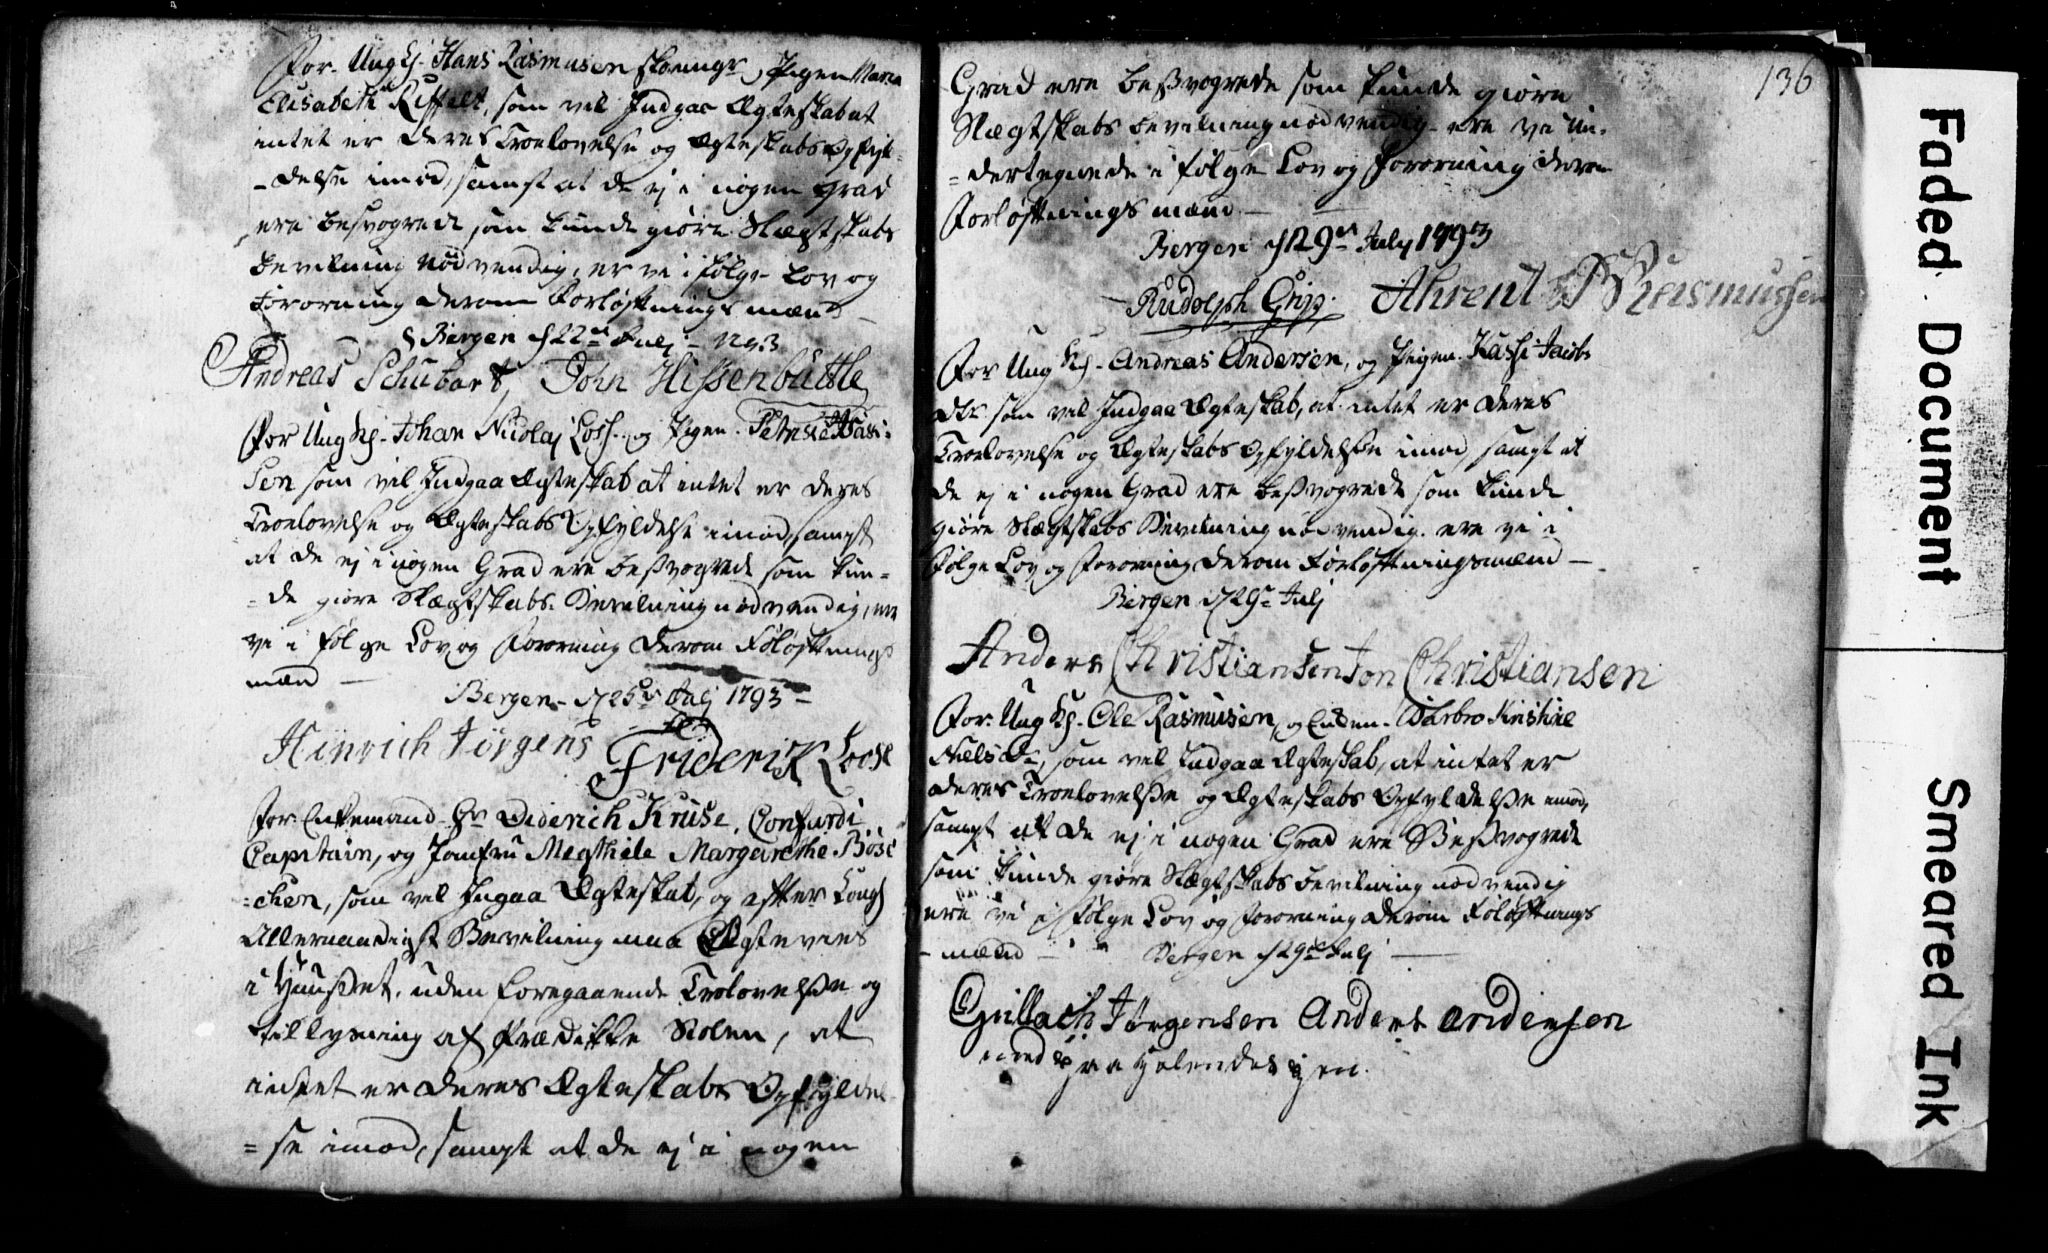 For Ung K. Hans Rasmusen , Pigen Maria
Elisabeth Riffelt, som vil Indgaae Ægteskab at
intet er deres Troelovelse og Ægteskabs Opfyl=
=delse imod, samt at de ej i nogen Grad
ere besvogrede som kunde giøre Slægtskabs
bevilning nødvendig, er vi i følge Lov og
Forordning derom Forløftnings mænd
Bergen d 22de Julj 1793
Andreas Schubart, John Hissenbüttle
For Ung K. Johan Nicolaj Loss. og Pigen.
sen som vil Indgaa Ægteskab at intet er deres
Troelovelse og Ægteskabs Opfyldelse imod, sampt
at de ej i nogen Grad ere beßvogrede som kun=
=de giøre Slægtskabs. Bevilning nødvendig, ere
vi i følge Lov og Forordning derom Foløftnings
mænd
Bergen d 25de Julj 1793
Hinrich Jörgens Friderik Loose
For Enkemand Hr Diderich Kruse, Confardi
Capitain, og Jomfru Megthele Margarethe Böse
=chen, som vel Ingaa Ægteskab, og efter Kongl
Allernaadigst Bevilning maa Ægtevies
i Huußet, uden foregaaende Trolovelße og
tillysning af Prædikke Stolen, at
intet er deres Ægteskabs Opfyldel
=se imod, sampt at de ej i nogen
136
Grad ere beßvogrede som kunde giøre
Slægtskabs bevilning nødvendig ere vi Un=
=dertegnede i følge Lov og Forordning derom
Forløftnings mænd
Bergen d 29de July 1793
Rudolph Grip. Ahrent Rasmussen
For Ung K. Andreas Andersen, og Pigen. Kassi Jacobs
dtr. som vil Indgaa Ægteskab, at intet er deres
Troelovelse og Ægteskabs Opfyldelße imod, sampt at
de ej i nogen Grad ere beßvogrede som kunde
giøre Slægtskabs Bevilning nødvendig. ere vi i
følge Lov og Forordning derom Forløftningsmænd
Bergen d 29de Julj
Anders Christiansen Jon Christiansen
For Ung K. Ole Rasmusen, og Enken. Barbro Kristine
Nielsdtr, som vel Indgaa Ægteskab, at intet er
deres Troelovelße og Ægteskabs Opfyldelße imod,
sampt at de ej i nogen Grad ere Beßvogrede
som kunde giøre Slægtskabs bevilning nødvendig
ere vi i følge Lov og Forordning derom Foløftnings
=mænd Bergen d 29de Julj
Gullach Jørgensen Anders andersen
med Pen.
Faded Document
Smeared Ink